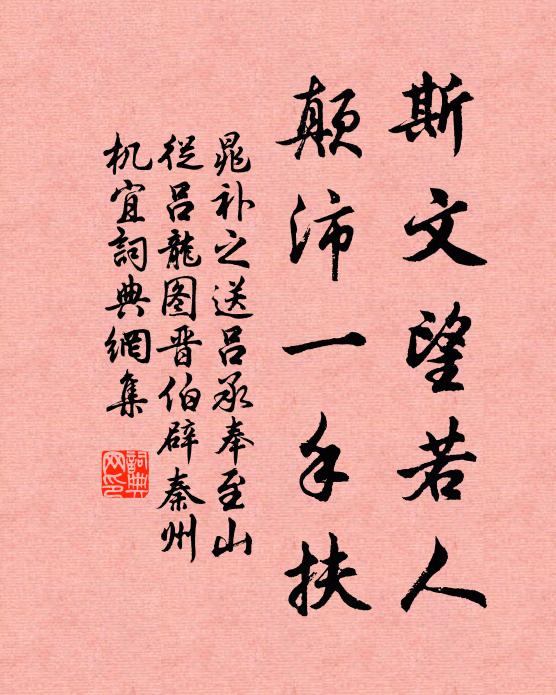 斯文望若人
颠沛一手扶
晁补之送吕承奉至山
從吕龍图晋伯辟秦州
机宜詞典網集
詞典网印